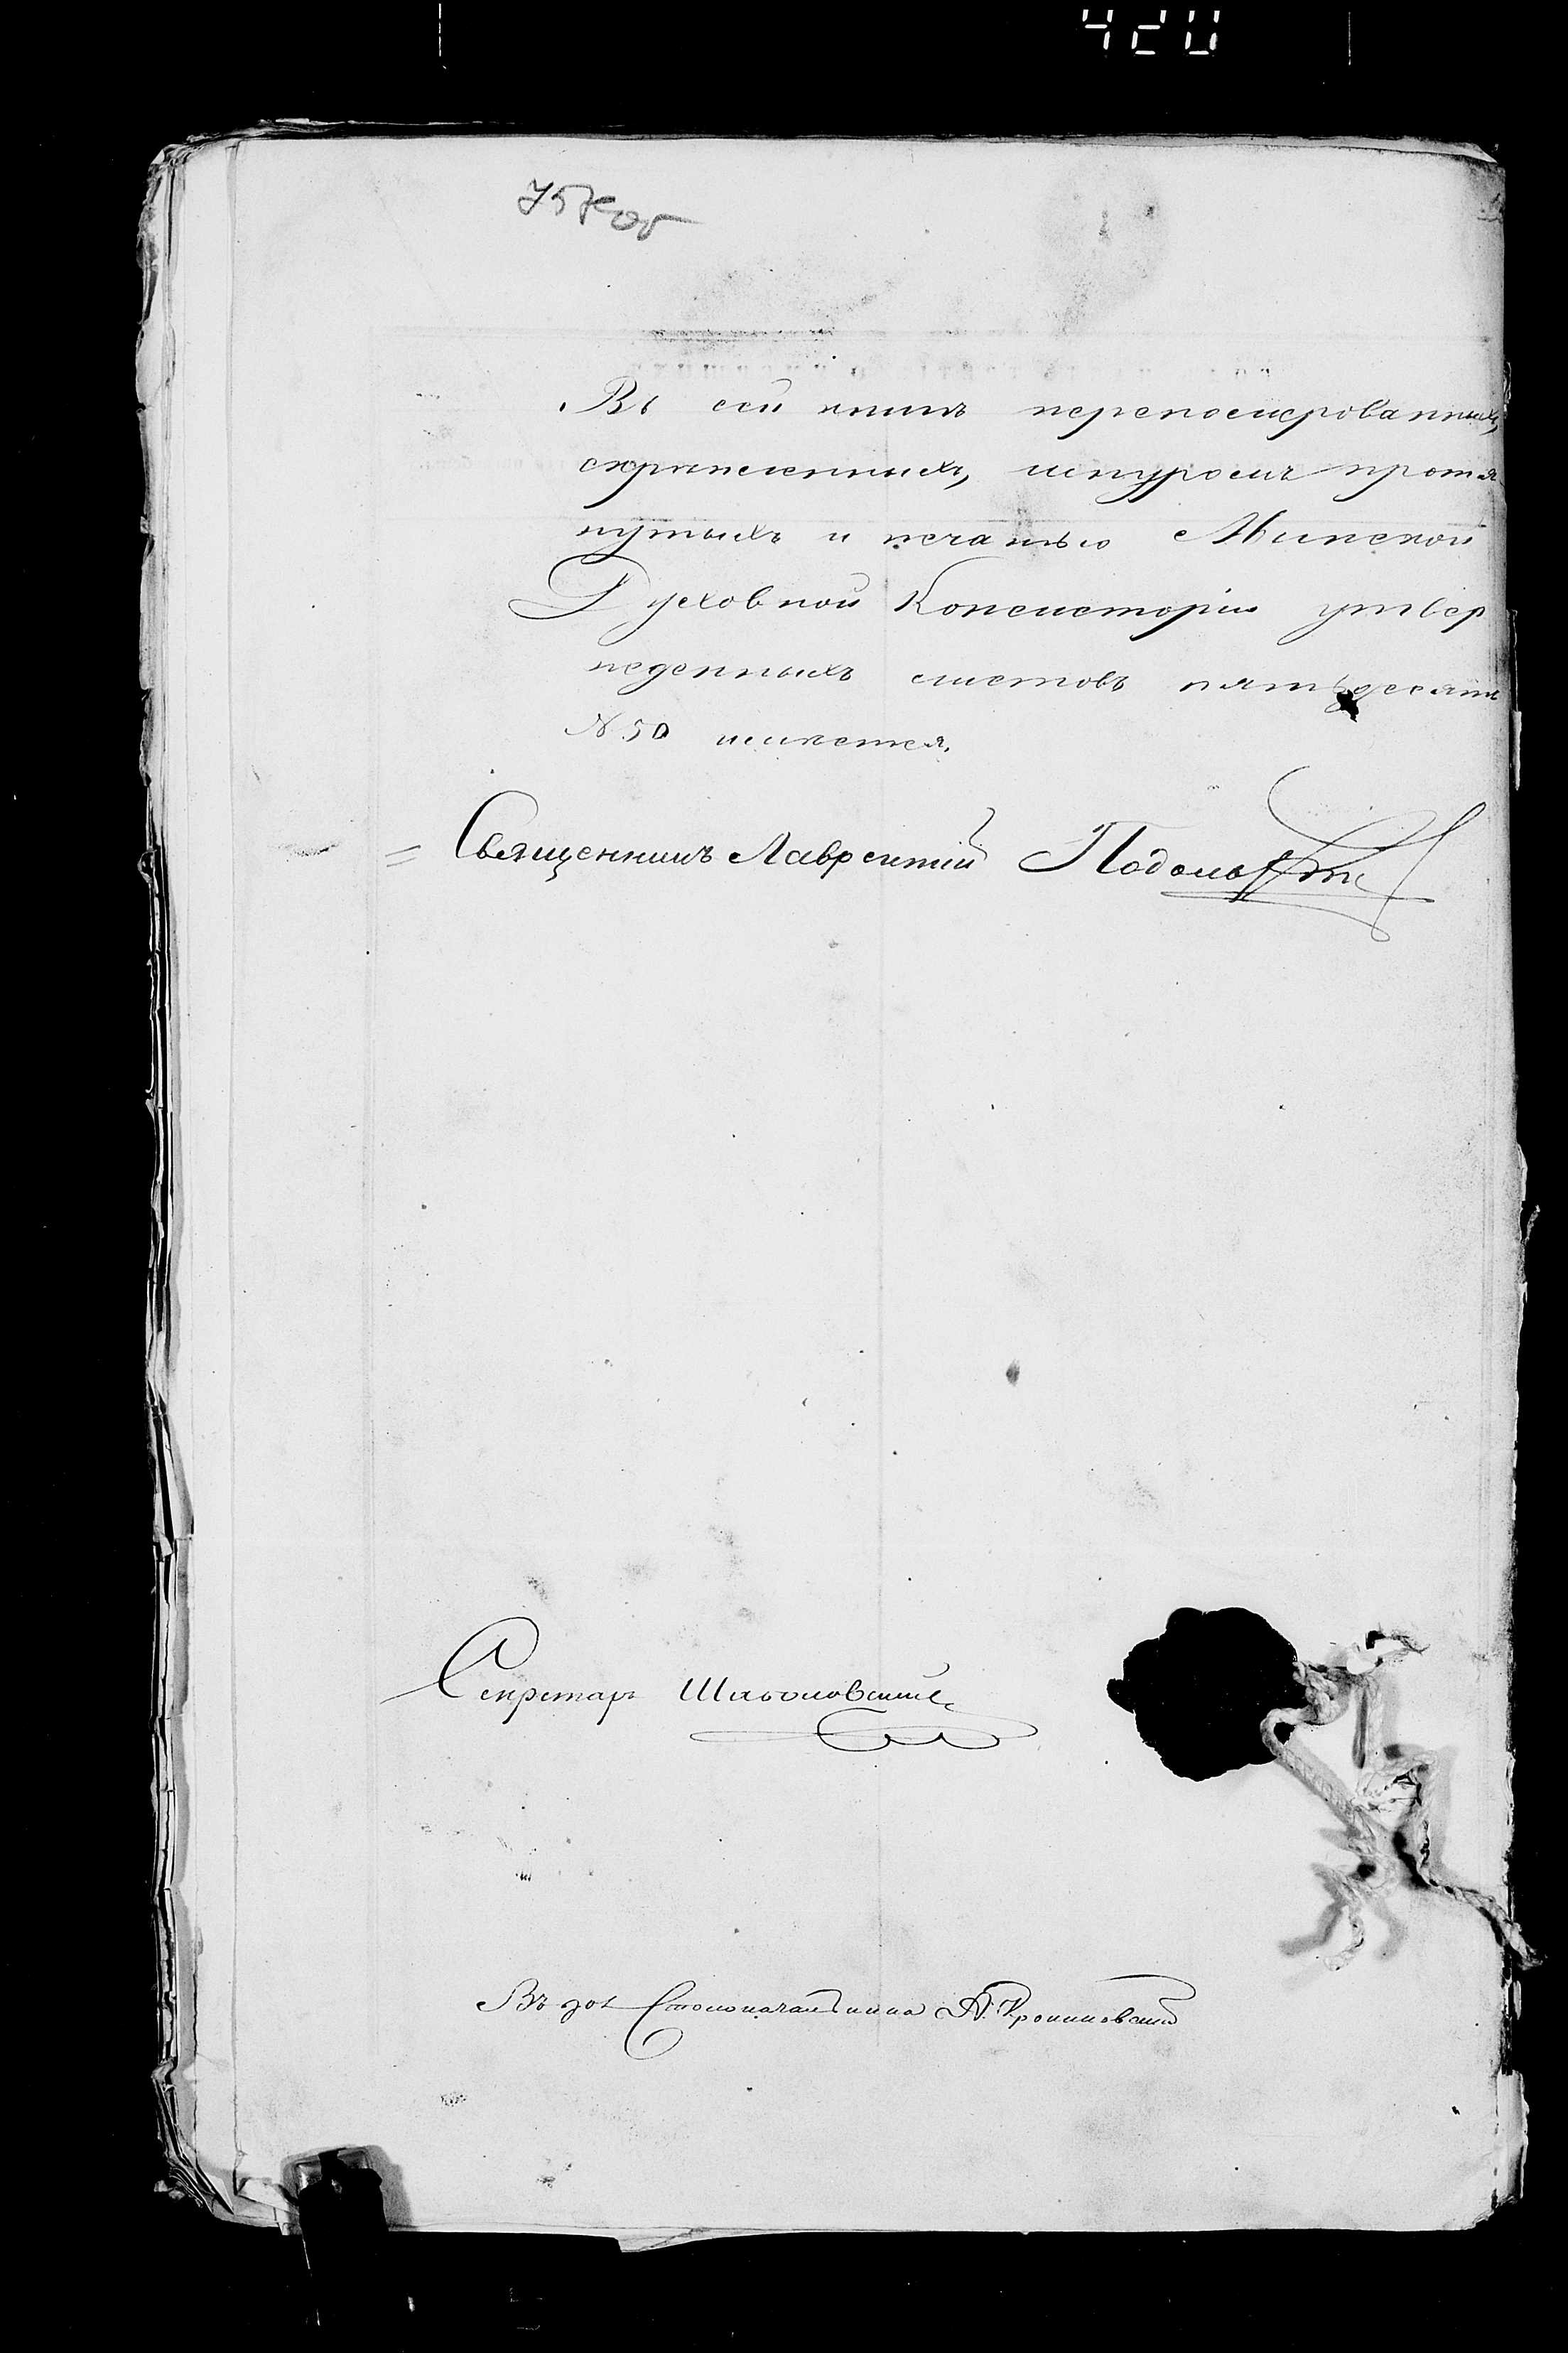 420
75 Коб
Въ сей книгѣ переномерованныхъ,
скрѣпленныхъ, шнуромъ протя
нутыхъ и печатью Минской
Духовной Консисторіи утвер
жденныхъ листовъ пятьдесятъ
№ 50 имѣется.
Священникъ Лаврентій
Секретарь
Въ дол Столоначальника А.